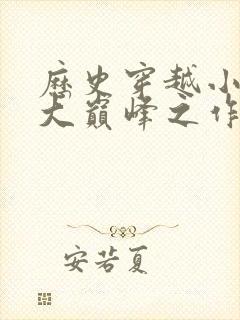 歷史穿越小
大巔峰之作
安若夏